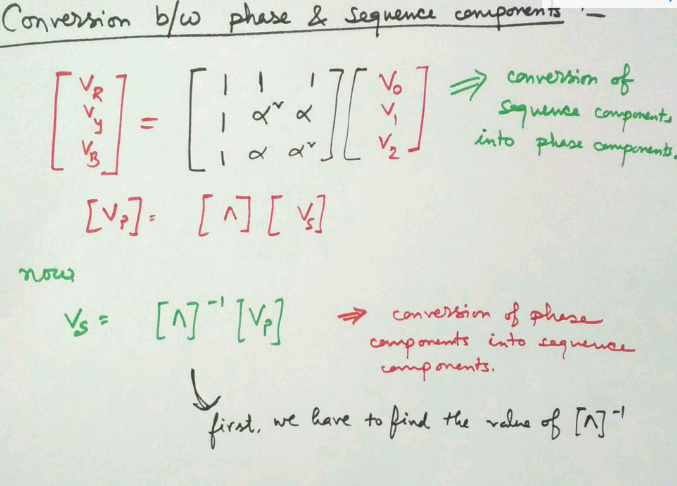 Conversion b/w phase & sequence components :-
[VR Vy VB] = [1 1 1 1 α² α 1 α α²] [V0 V1 V2] ⇒ conversion of sequence components into phase components.
[Vp] = [Λ] [Vs]
now,
Vs = [Λ]⁻¹ [Vp] ⇒ conversion of phase components into sequence components.
first, we have to find the value of [Λ]⁻¹